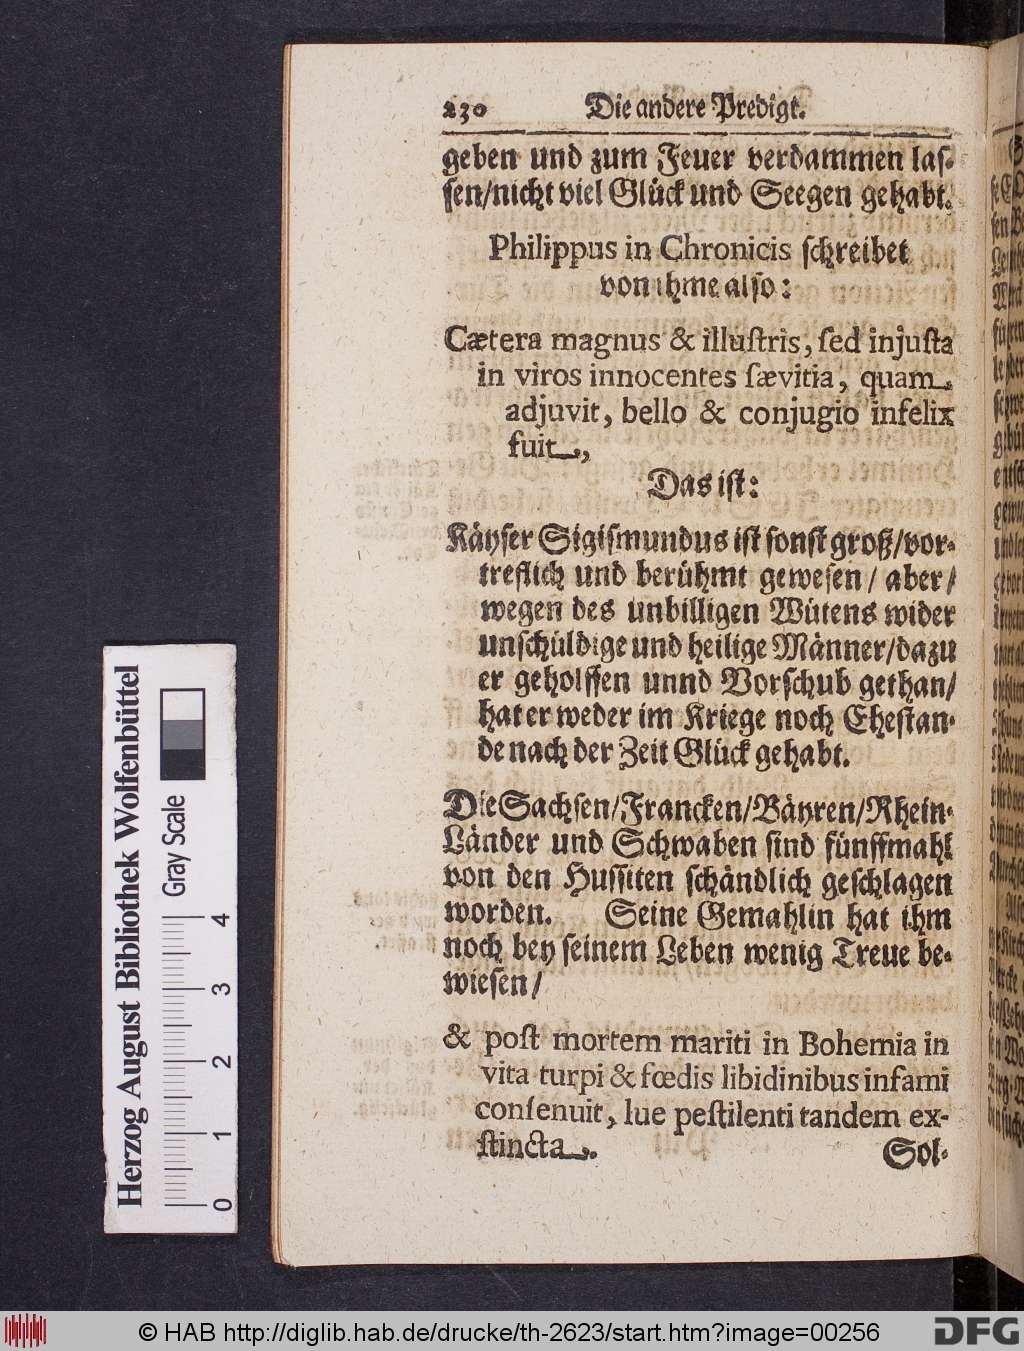 230 Die andere Predigt.
geben und zum Feuer verdammen las-
sen/nicht viel Glück und Seegen gehabt.
Philippus in Chronicis schreibet
von ihme also:
Cætera magnus & illuſtris, ſed injuſta
in viros innocentes ſævitia, quam
adjuvit, bello & conjugio infelix
fuit,
Das ist:
Käyser Sigismundus ist sonst groß/vor-
treflich und berühmt gewesen/ aber/
wegen des unbilligen Wütens wider
unschüldige und heilige Männer/dazu
er geholffen unnd Vorschub gethan/
hat er weder im Kriege noch Ehestan-
de nach der Zeit Glück gehabt.
Die Sachsen/Francken/Bäyren/Rhein-
Länder und Schwaben sind fünffmahl
von den Hussiten schändlich geschlagen
worden. Seine Gemahlin hat ihm
noch bey seinem Leben wenig Treue be-
wiesen/
& poſt mortem mariti in Bohemia in
vita turpi & fœdis libidinibus infami
conſenuit, lue peſtilenti tandem ex-
ſtincta.
Sol-
Herzog August Bibliothek Wolfenbüttel
Gray Scale
0 1 2 3 4
© HAB http://diglib.hab.de/drucke/th-2623/start.htm?image=00256
DFG